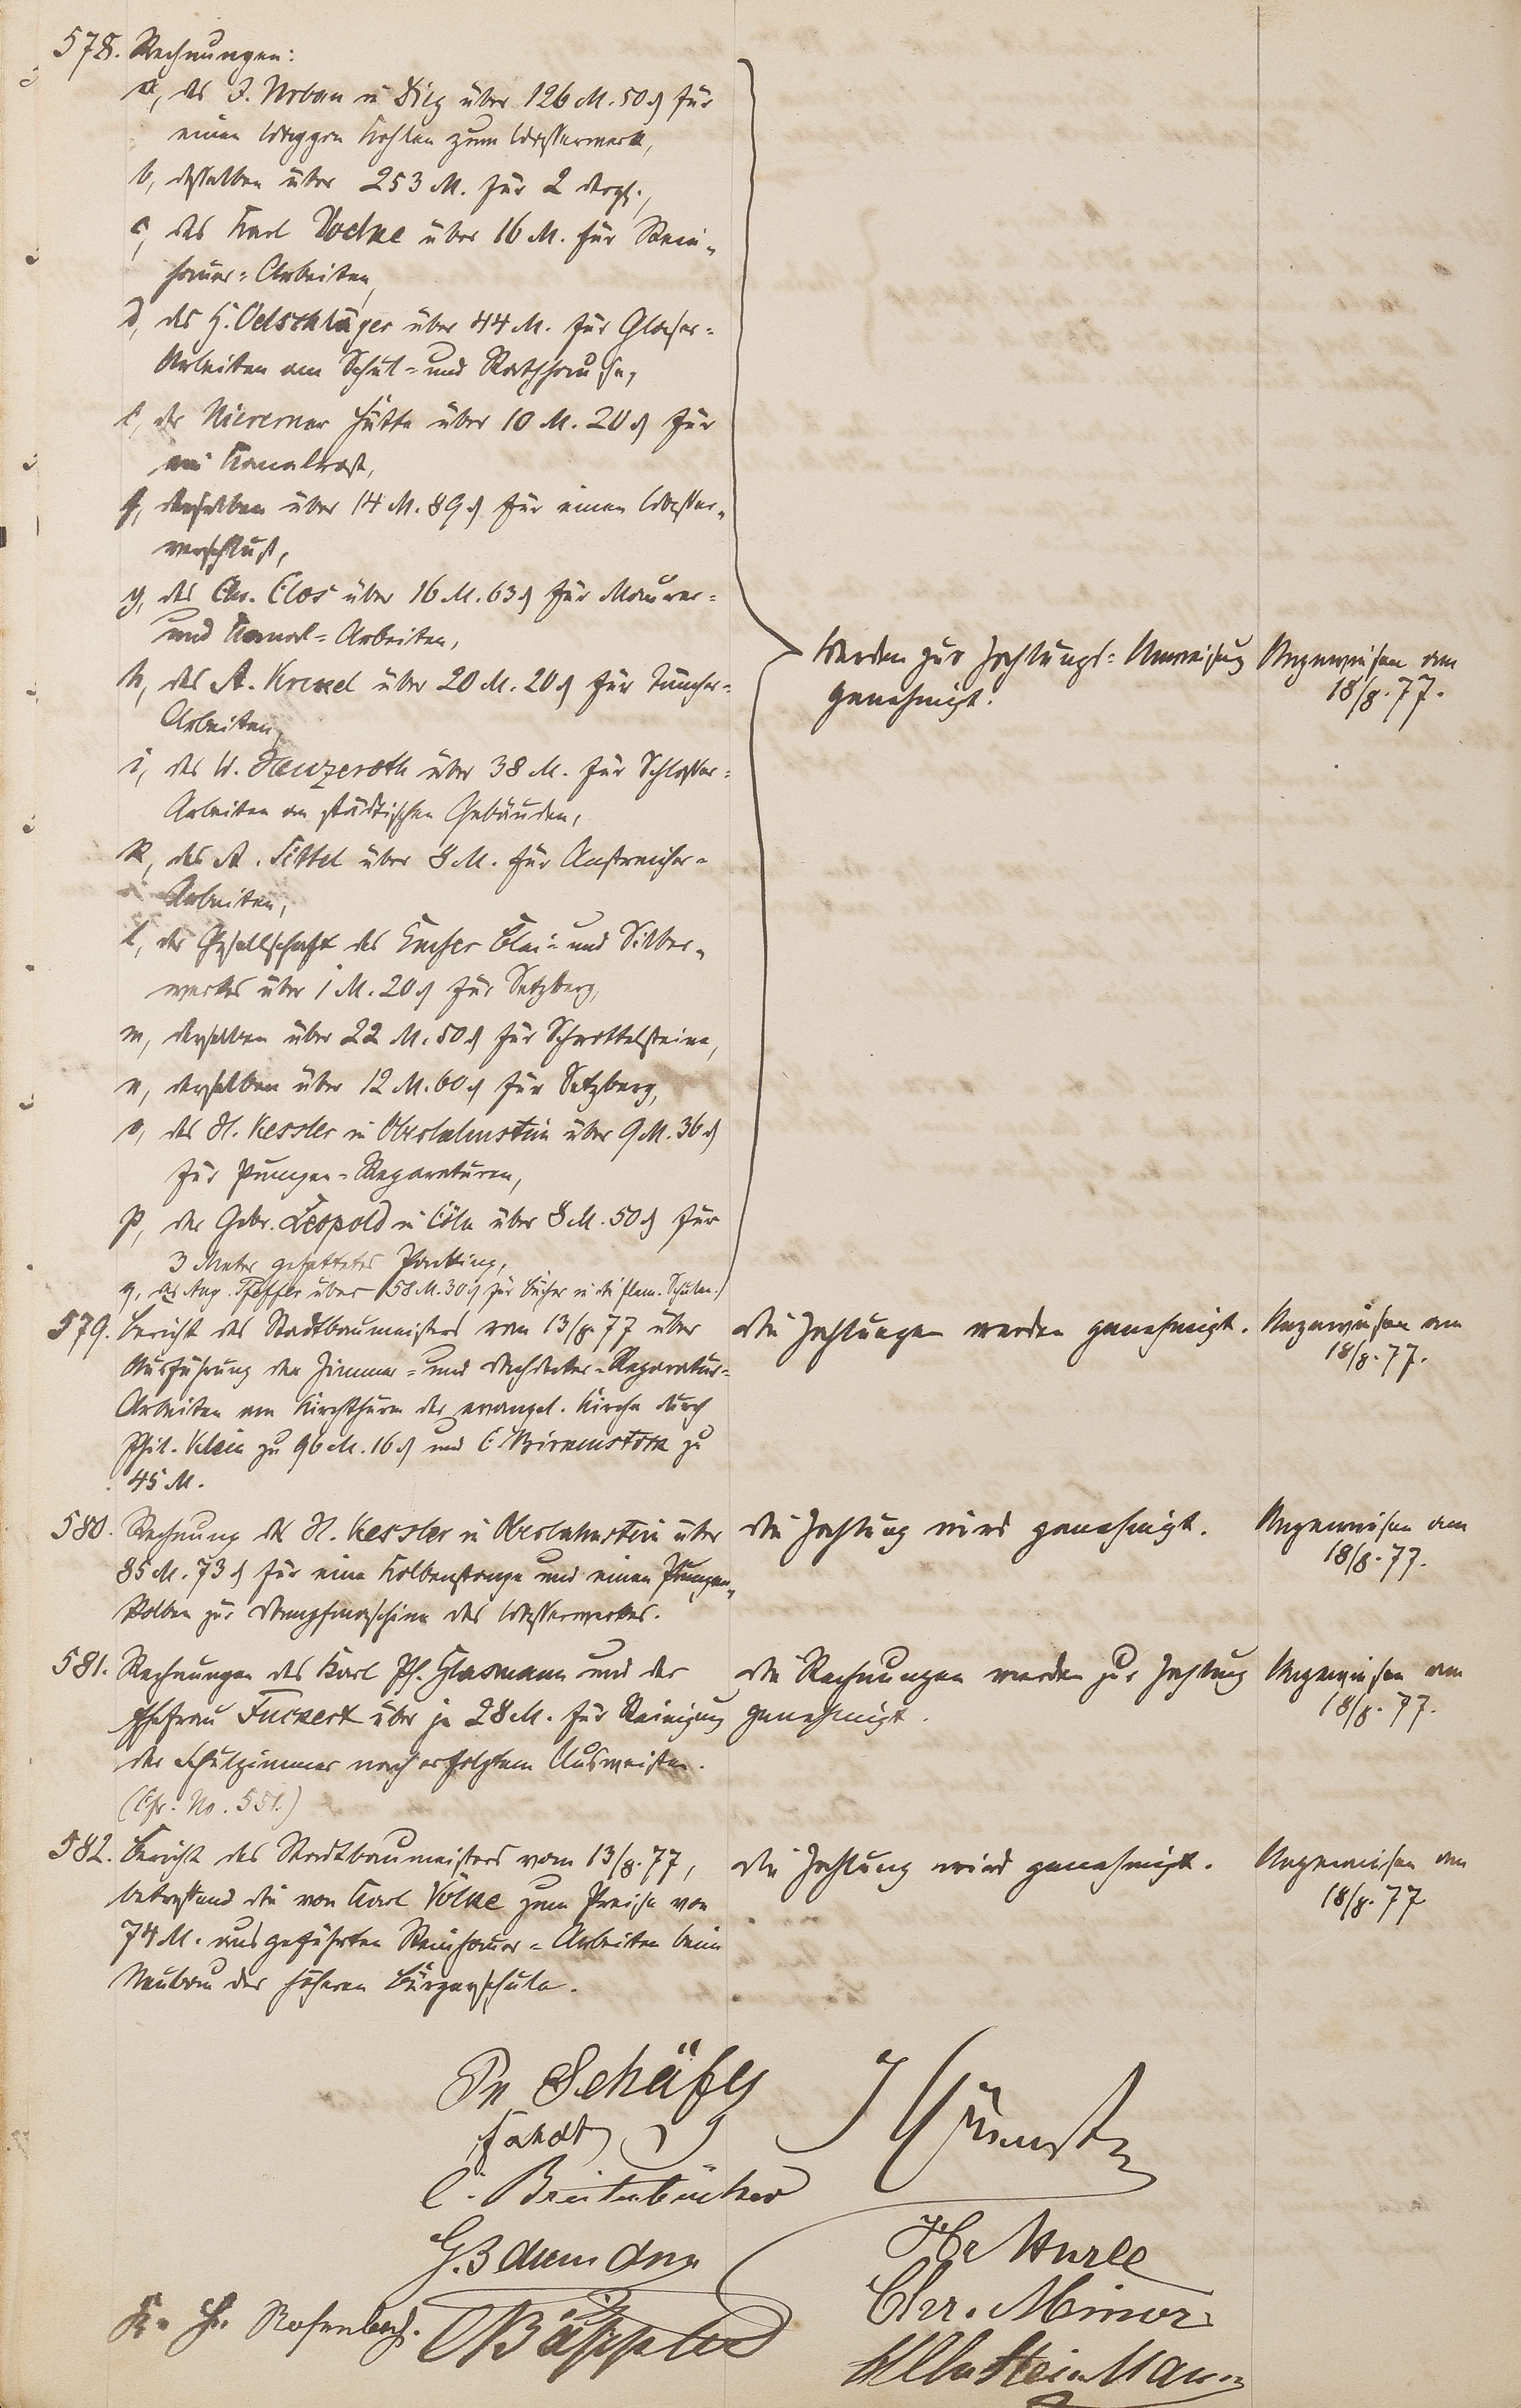 578. Rechnungen:
a, des J. Urban in Diez über 126 M. 50 ₰ für
einen Waggon Kohlen zum Wasserwerk,
b, desselben über 253 M. für 2 dergl.,
c, des Karl Voelke über 16 M. für Stein-
hauer-Arbeiten,
d, des H. Oelschläger über 44 M. für Glaser-
Arbeiten am Schul- und Rathhause,
e, der Nieverner Hütte über 10 M. 20 ₰ für
ein Kanalrost,
f, derselben über 14 M. 89 ₰ für einen Wasser-
verschluß,
g, des Chr. Clos über 16 M. 63 ₰ für Maurer-
und Kanal-Arbeiten,
h, des A. Krekel über 20 M. 20 ₰ für Tüncher-
Arbeiten,
i, des W. Henzeroth über 38 M. für Schlosser-
Arbeiten an städtischen Gebäuden,
k, des A. Sittel über 8 M. für Anstreicher-
Arbeiten,
l, der Gesellschaft des Emser Blei- und Silber-
werkes über 1 M. 20 ₰ für Setzberg,
m, derselben über 22 M. 50 ₰ für Schrottelsteine,
n, derselben über 12 M. 60 ₰ für Setzberg,
o, des H. Kessler in Oberlahnstein über 9 M. 36 ₰
für Pumpen-Reparaturen,
p, der Gebr. Leopold in Cöln über 8 M. 50 ₰ für
3 Meter gefettetes Packing,
q, des Aug. Pfeffer über 158 M. 30 ₰ für Bücher in die Elem. Schulen.
Werden zur Zahlungs-Anweisung
genehmigt.
Angewiesen am
18/8. 77.
579. Bericht des Stadtbaumeisters vom 13/8. 77 über
Ausführung der Zimmer- und Dachdecker-Reparatur-
Arbeiten am Kirchthurm der evangel. Kirche durch
Phil. Klein zu 96 M. 16 ₰ und C. Birkenstock zu
45 M.
Die Zahlungen werden genehmigt.
Angewiesen am
18/8. 77.
580. Rechnung des H. Kessler in Oberlahnstein über
85 M. 73 ₰ für eine Kolbenstange und einen Pumpen-
kolben zur Dampfmaschine des Wasserwerkes.
Die Zahlung wird genehmigt.
Angewiesen am
18/8. 77.
581. Rechnungen des Karl Ph. Glasmann und der
Ehefrau Fuckert über je 28 M. für Reinigung
der Schulzimmer nach erfolgtem Ausweißen.
(Cfr. No. 551.)
Die Rechnungen werden zur Zahlung
genehmigt.
Angewiesen am
18/8. 77.
582. Bericht des Stadtbaumeisters vom 13/8. 77,
betreffend die von Karl Völke zum Preise von
74 M. ausgeführten Steinhauer-Arbeiten beim
Neubau der höheren Bürgerschule.
Die Zahlung wird genehmigt.
Angewiesen am
18/8. 77
Schäfer
C. Breitenbücher
G. Baumann
Chr. Minor
Rosenbach.